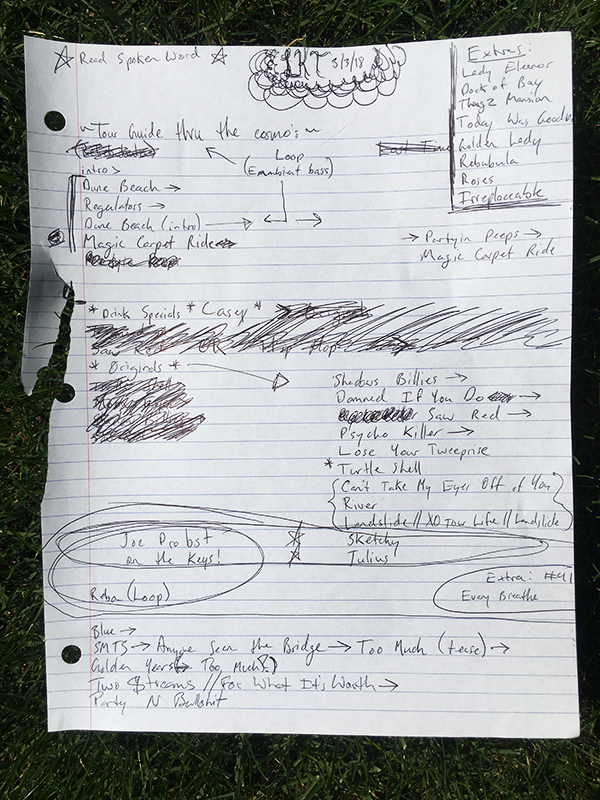 ☆ Read Spoken Word ☆
LRT 3/3/18
Extras:
Lady Eleanor
Dock of Bay
Thugz Mansion
Today Was Good
Golden Lady
Rebabula
Roses
Irreplaceable
~Tour Guide thru the cosmo's~
Loop
(Emambient bass)
intro >
Dune Beach →
Regulators →
Dune Beach (intro) →
Magic Carpet Ride
→ Partyin Peeps →
Magic Carpet Ride
*Drink Specials* Casey *
Saw Red OR Hip Hop
* Originals *
Shabus Billies →
Damned If You Do
Saw Red →
Psycho Killer →
Lose Your Tweeprise
*Turtle Shell
{Can't Take My Eyes Off of You
River
Landslide // XO Tour Life // Landslide}
Joe Probst
on the Keys!
☆ Sketchy
☆ Julius
Reba (Loop)
Extra: #41
Every Breathe
Blue →
SMTS → Anyone Seen the Bridge → Too Much (tease) →
Golden Years (→ Too Much?)
Two $treams // For What It's Worth →
Party N Bullshit